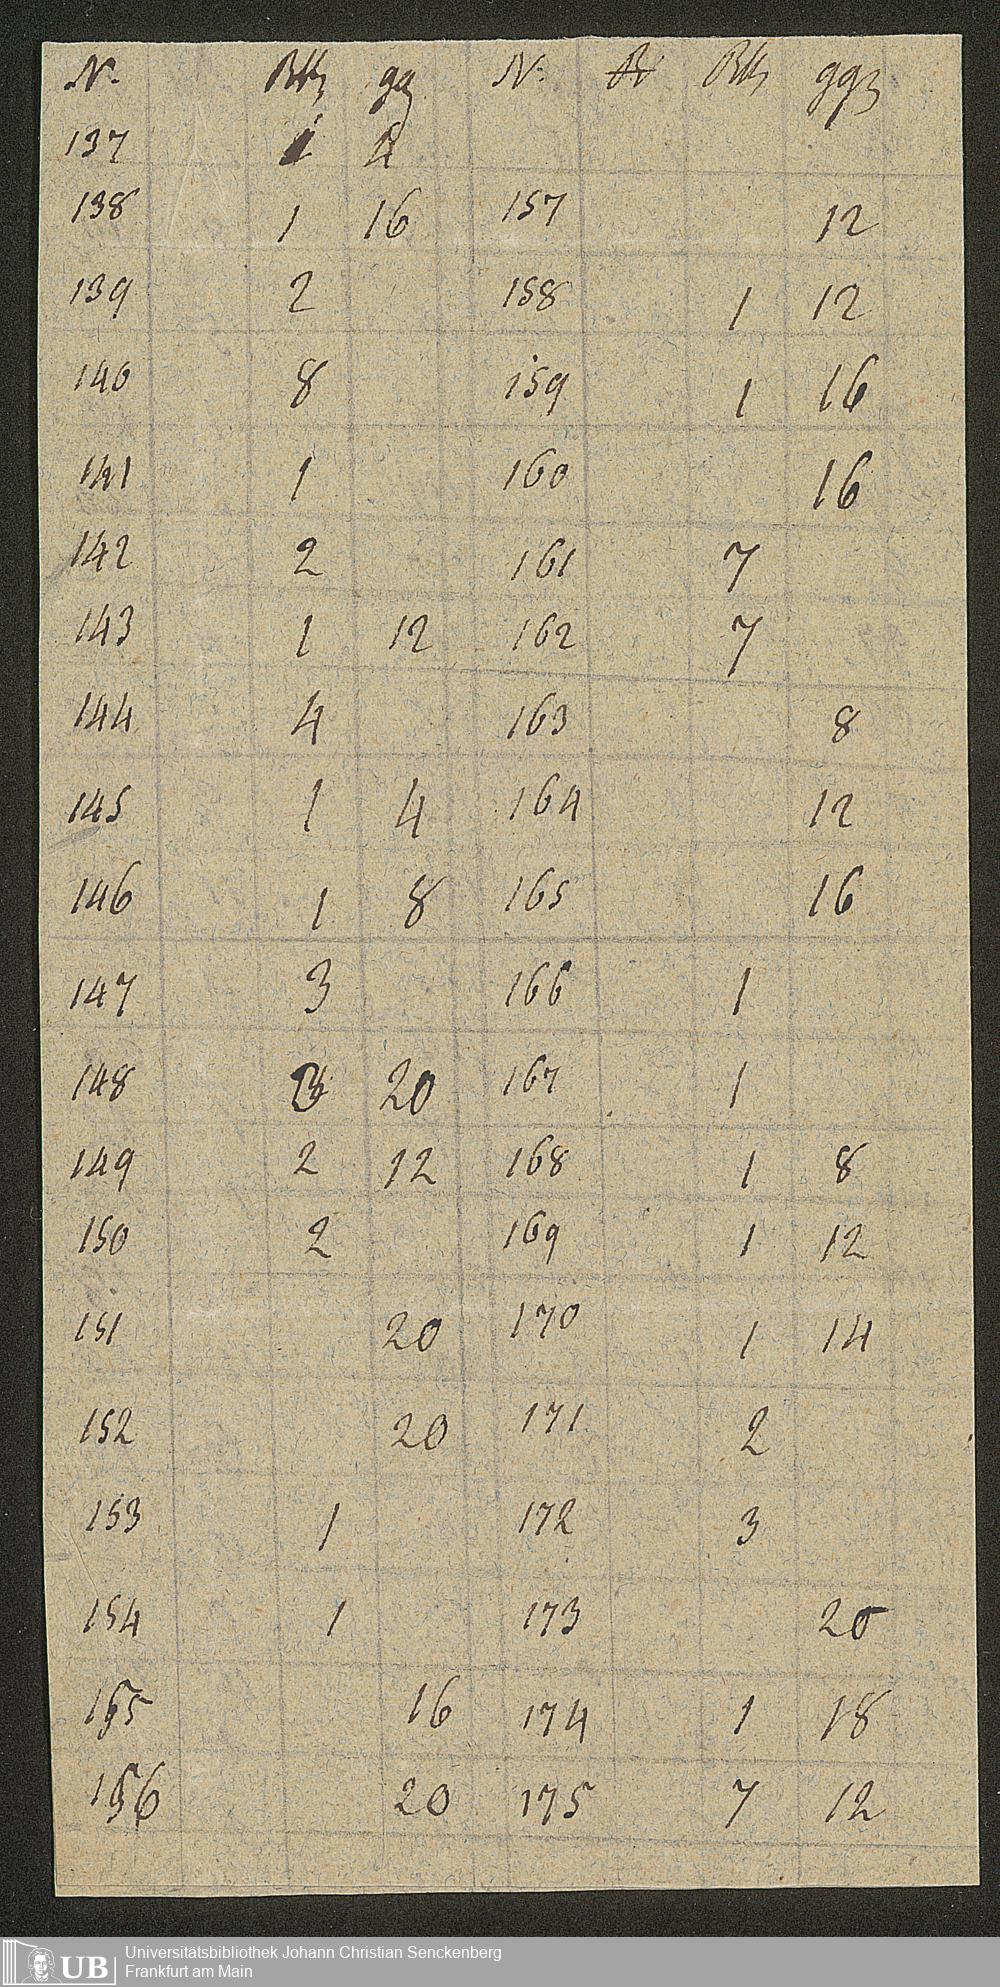 N. Rth gg N. Rth ggr
137 1 4
138 1 16 157 12
139 2 158 1 12
140 8 159 1 16
141 1 160 16
142 2 161 7
143 1 12 162 7
144 4 163 8
145 1 4 164 12
146 1 8 165 16
147 3 166 1
148 20 167 1
149 2 12 168 1 8
150 2 169 1 12
151 20 170 1 14
152 20 171 2
153 1 172 3
154 1 173 20
155 16 174 1 18
156 20 175 7 12
UB Universitätsbibliothek Johann Christian Senckenberg
Frankfurt am Main